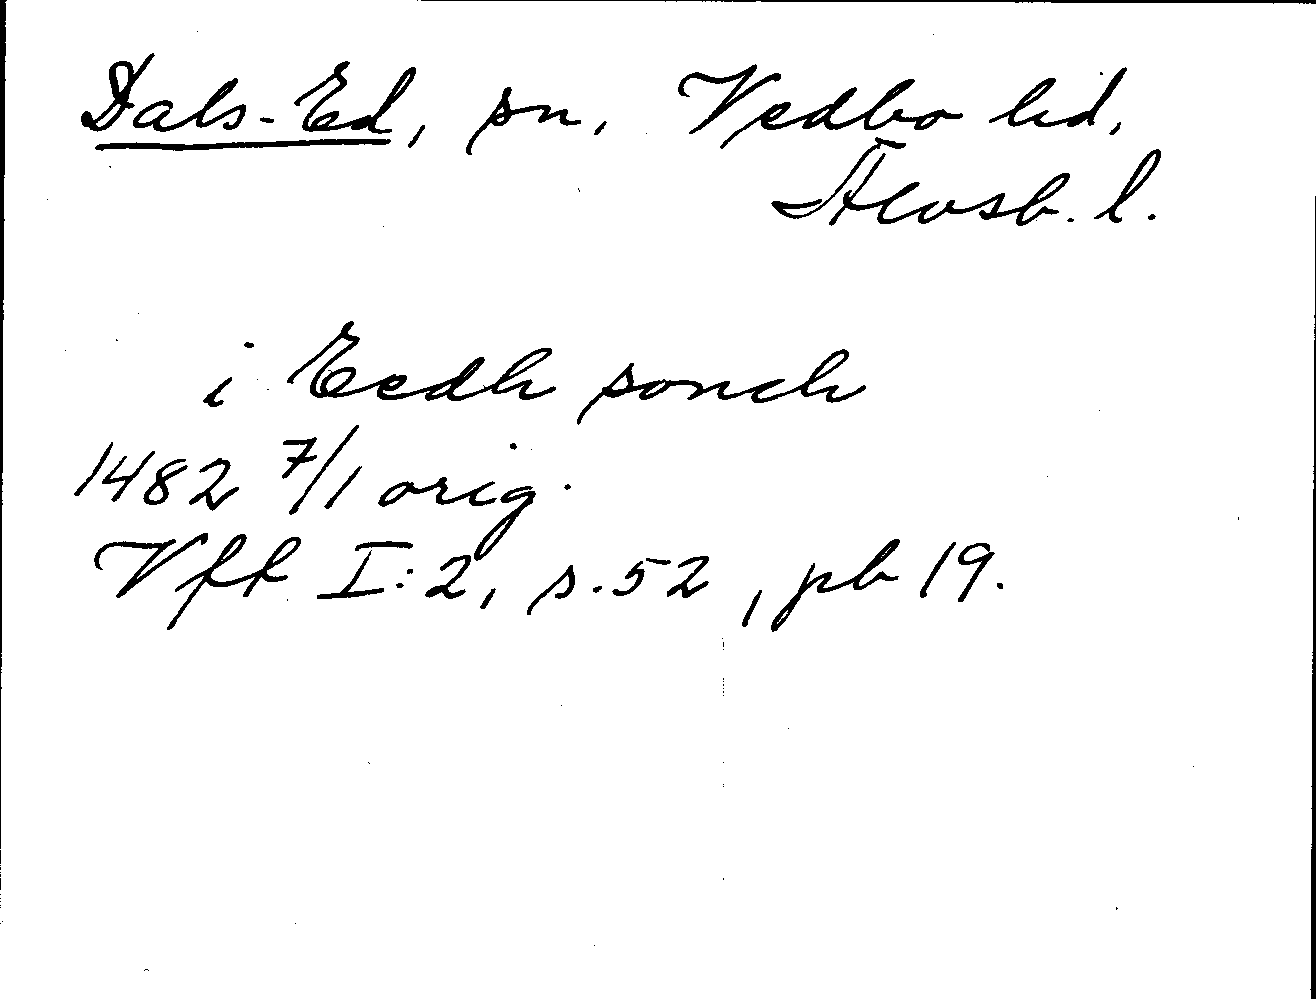 Dals-Ed, sn, Vedbo hd,
Älvsb. l.
i Eedh sonch
1482 7/1 orig.
Vff I:2, s. 52, pb 19.